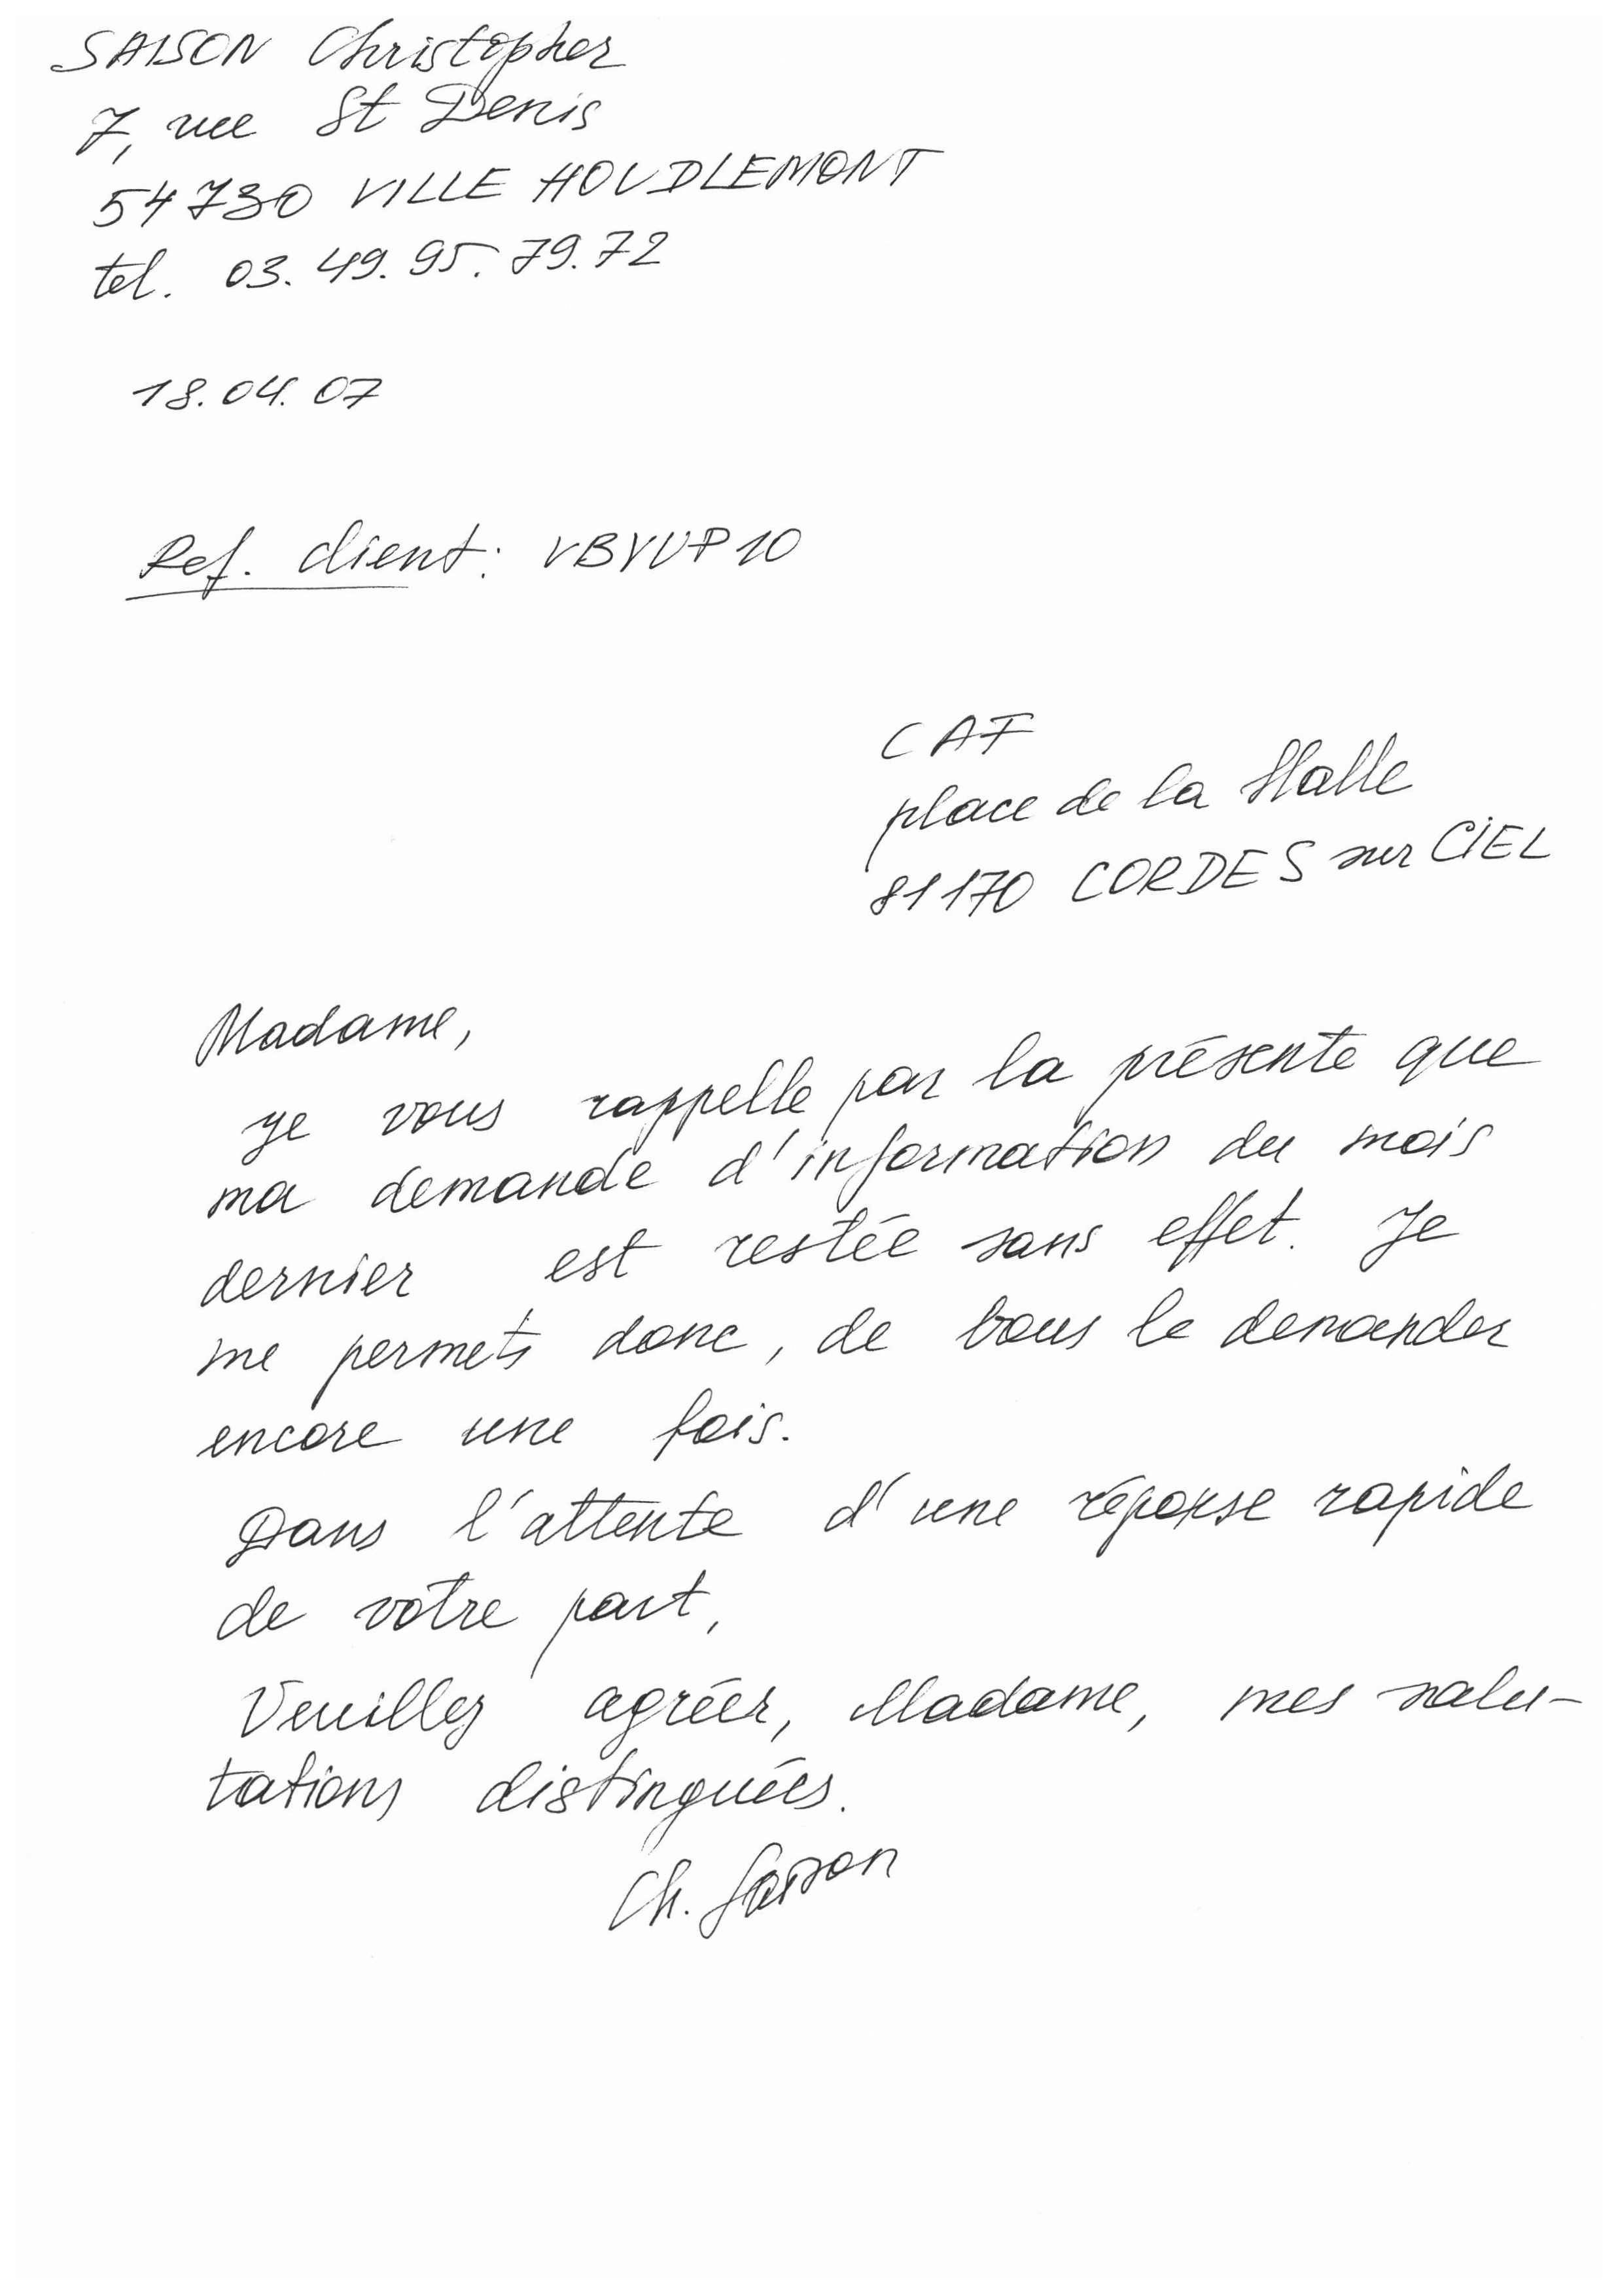 SAISON Christopher
7, rue St Denis
54730 VILLE HOUDLEMONT
tel. 03.49.95.79.72
18.04.07
Ref. client: VBYUP10
CAF
place de la Halle
81170 CORDES sur CIEL
Madame,
je vous rappelle par la présente que
ma demande d'information du mois
dernier est restée sans effet. Je
me permets donc, de vous le demander
encore une fois.
Dans l'attente d'une réponse rapide
de votre part,
Veuillez agréer, Madame, mes salu-
tations distinguées.
Ch. Saison